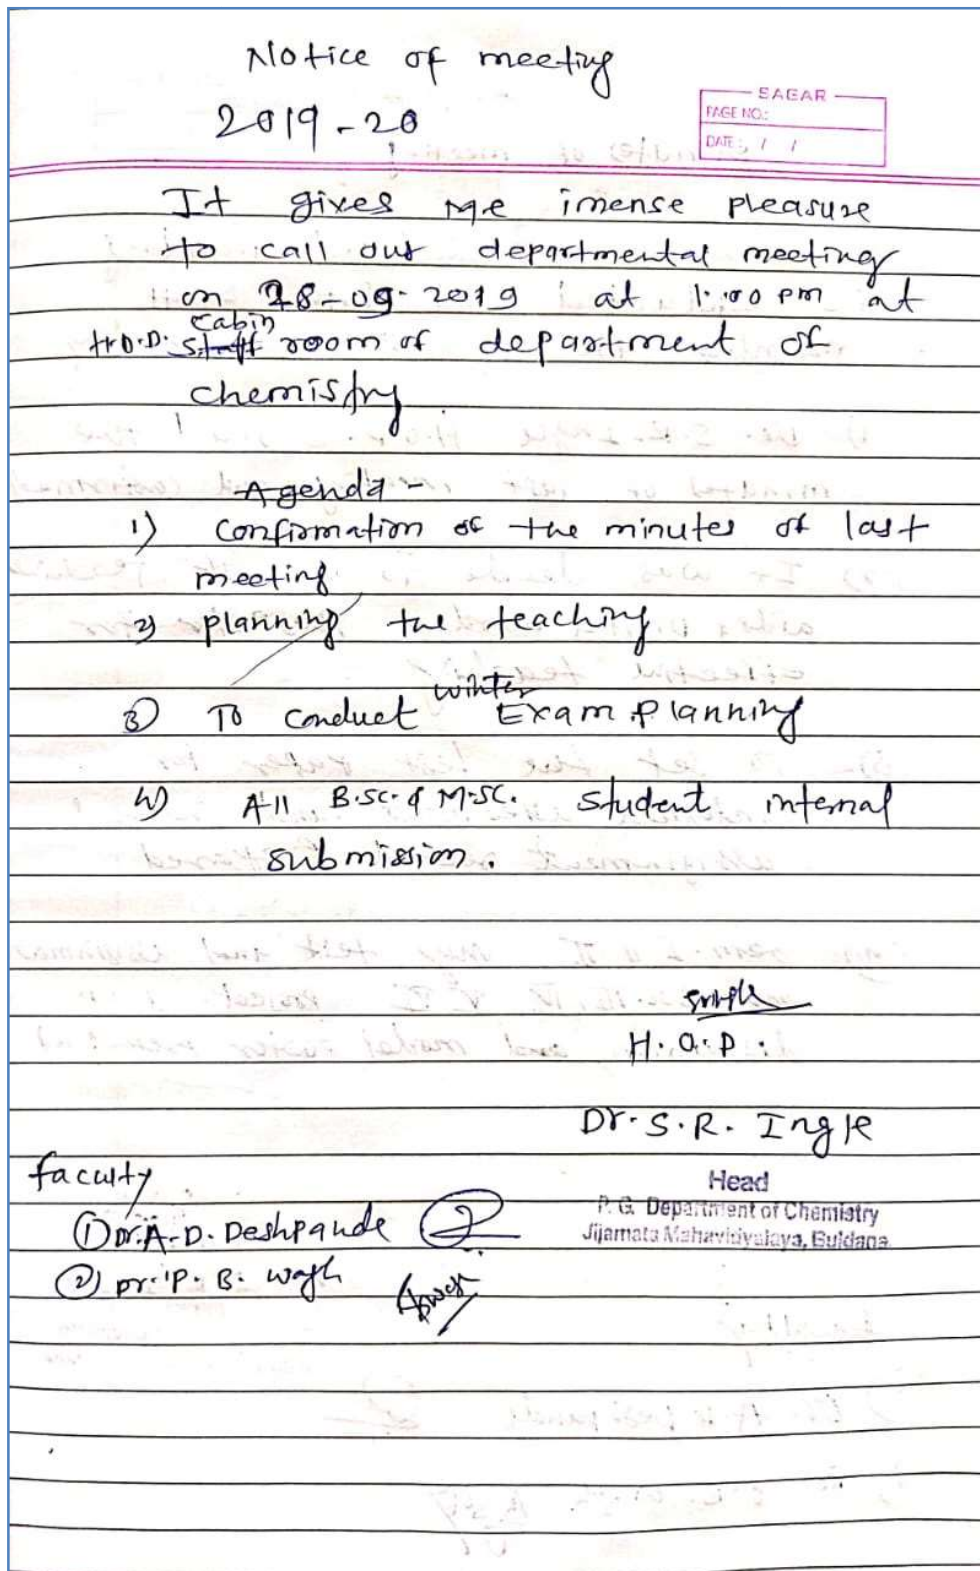 Notice of meeting
2019-20
SAGAR
PAGE NO.:
DATE: / /
It gives me imense pleasure
to call out departmental meeting
on 28-09-2019 at 1:00 pm at
H.O.D. Cabin room of department of
chemistry
Agenda -
1) confirmation of the minutes of last
meeting
2) planning the teaching
3) To conduct winter Exam planning
4) All B.sc. & M.sc. student internal
submission.
H.O.D.
Dr. S. R. Ingle
Head
P. G. Department of Chemistry
Jijamata Mahavidyalaya, Buldana
faculty
① Dr. A. D. Deshpande
② pr. P. B. Wagh